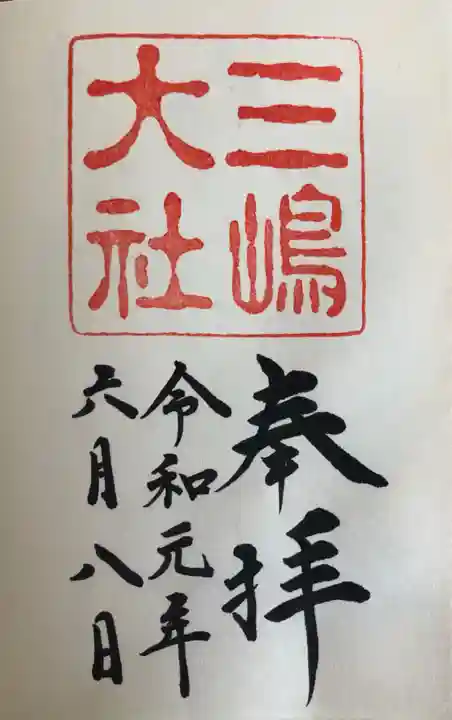 三嶋
大社
奉拝
令和元年
六月八日